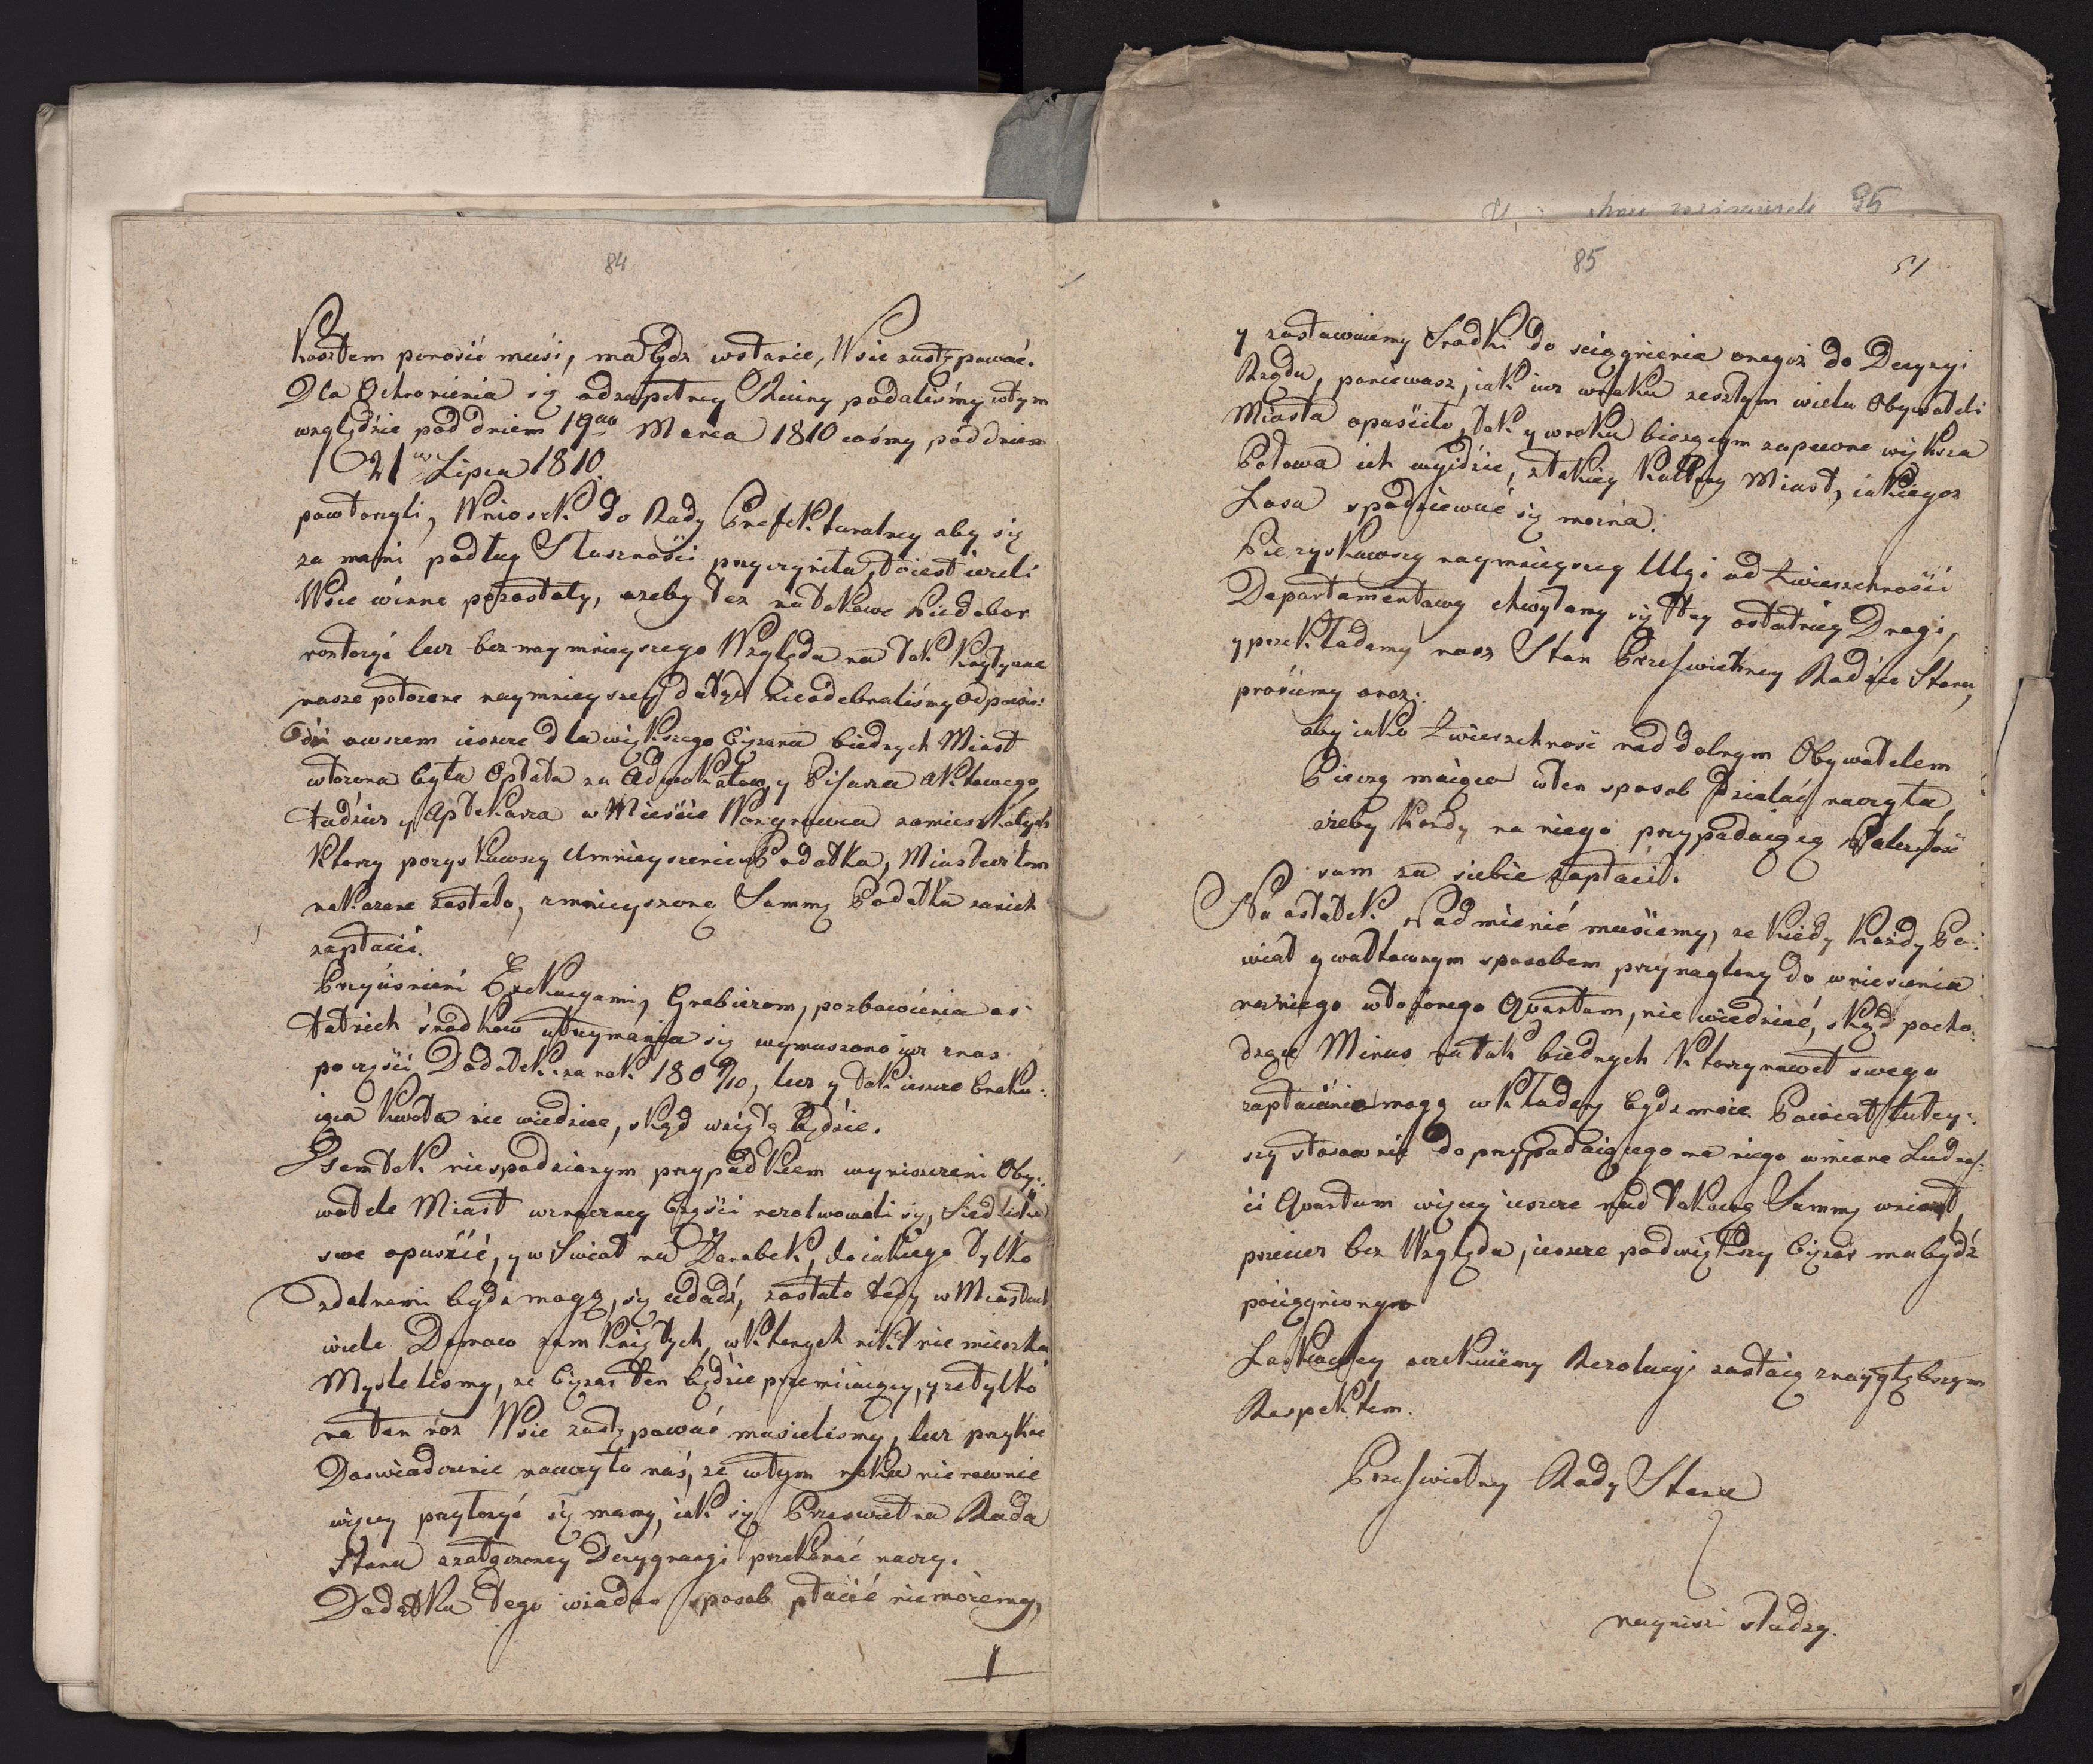 84
Kosztem ponosić musi, ma bydz wstanie, Wsie zastępować.
Dla Ochronienia się odzupełney Ruiny podaliśmy wtym
względzie pod dniem 19go Marca 1810 cośmy pod dniem
21go Lipca 1810
powtorzyli, Wniosek do Rady Prefekturalney aby się
za nami podług Słuszności przyczyniła, to iest ieżeli
Wsie winne pozostały, ażeby też na takowe Niedobor
rozłożyć lecz bez naymnieyszego Względu na tak krytyczne
nasze położenie naymnieyszey dotąd nieodebraliśmy odpowie:
dzi owszem ieszcze dla większego Ciężaru biednych Miast
włożona była Opłata za Adwokatow, y Pisarza Aktowego
tudzież y Aptekarza w Mieście Wągrowcu zamieszkałych
Ktorzy pozyskawszy Umnieyszenie Podatku, Miasteczkom
nakazane zostało, zmnieyszoną Summę Podatku zanich
zapłacić.
Przyciśnieni Exekucyami, Grabieżom, pozbawienia os:
tatnich środkow utrzymania się wymuszono już znas
po części Podatek za rok 1809/10, lecz y tak ieszcze braku:
iąca kwota nie wiedzieć, skąd wziętą będzie.
Ogemtek niespodzianym przypadkiem wyniszczeni Oby:
watele Miast wznaczney Części rezolwowali się, Siedliska
swe opuścić, y w Świat na Zarobek, do iakiego tylko
zdatnemi bydz mogą, się udadź, zostało tedy w Miastach
wiele Domow zamkniętych, wktorych nikt nie mieszka
Myśleliśmy, że Ciężar ten będzie przemiiaiący, y że tylko
na ten raz Wsie zastępować musieliśmy, lecz przykre
Doświadczenie nauczyło nas, że wtym roku nierownie
więcey przyłożyć się mamy, iak się Prześwietna Rada
Stanu załączoney Dezygnacyi przekonać raczy.
Podatku tego wżaden sposob płacić niemożemy,
85
51
y zostawuiemy Srodki do sciągnienia onegoż do Decyzyi
Rządu, ponieważ, iak iuż wroku zeszłym wielu Obywateli
Miasta opuściło, tak y wroku bieżącym zapewne większa
Połowa ich wyidzie, ztakiey Kultury Miast, iakiegoż
Losu spodziewać się można.
Nie zyskawszy naymnieyszey Ulgi od Zwierzchności
Departamentowey chwytamy się tey ostatniey Drogi,
y przekładamy nasz Stan Prześwietney Radzie Stanu,
prosiemy oraz:
aby iako Zwierzchność nad dolnym Obywatelem
Pieczę maiąca wten sposob działać raczyła
ażeby każdy na niego przypadaiącą Należytość
sam za siebie zapłacił.
Na ostatek Nadmienić musiemy, że kiedy każdy Po:
wiat gwałtownym sposobem przynaglony do wniesienia
naniego włożonego Quantum, nie wiedzieć, skąd pocho:
dzące Minus na tak biednych ktorzy nawet swego
zapłacenia mogą wkładany bydz może. Powiat tutey:
szy stosownie do przypadaiącego na niego wmiarę Ludnoś:
ci Quantum więcey ieszcze nad takową Summę wniosł,
przeciez bez Względu, ieszcze podwiększy Ciężar ma bydź
pociągnionym
Łaskawey oczekuiemy Rezolucyi zostaią znaygłębszym
Respektem.
Prześwietney Rady Stanu
nayniżsi słudzy.